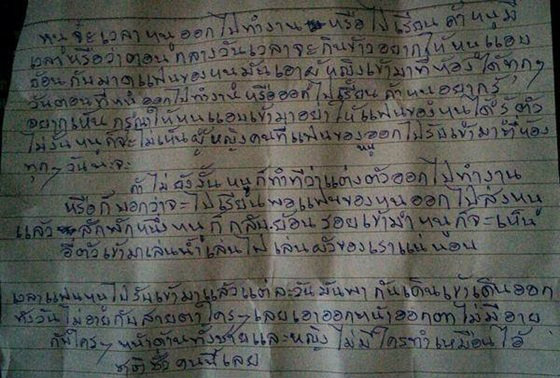 หนูจ๋ะเวลาหนูออกไปทำงานหรือไปเรียนถ้าหนูมี
เวลาหรือว่าตอนกลางวันเวลาจะกินข้าวอยากให้หนูแอบ
ย้อนกับมาดูแฟนของหนูมันเอาผู้หญิงเข้ามาที่ห้องได้ทุกๆ
วันตอนที่หนูออกไปทำงานหรือออกไปเรียนถ้าหนูอยากรู้
อยากเห็นกรุณาให้หนูแอบเข้ามาอย่าให้แฟนของหนูได้รู้ตัว
ไม่งั้นหนูก็จะไม่เห็นผู้หญิงคนที่แฟนของหนูออกไปรับเข้ามาที่ห้อง
ทุกๆวันนะจ๊ะ
ถ้าไม่ยังงั้นหนูก็ทำทีว่าแต่งตัวออกไปทำงาน
หรือก็บอกว่าจะไปเรียนพอแฟนของหนูออกไปส่งหนู
แล้วสักพักหนึ่งหนูก็กลับย้อนรอยเข้ามาหนูก็จะเห็น
อีตัวเข้ามาเล่นน้ำเล่นไปเล่นผัวของเราแน่นอน
เวลาแฟนหนูไปรับเข้ามาแล้วแต่ละวันมันพากันเดินเข้าเดินออก
ทั้งวันไม่อายกันสายตาใครๆเลยเอาออกหน้าออกตาไม่มีอาย
กันใครๆหน้าด้านทั้งชายและหญิงไม่มีใครทำเหมือนไอ้
คนนี้เลย